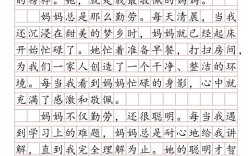 的榜样。她，就是我最敬佩的妈妈。
妈妈总是那么勤劳。每天清晨，当我
还沉浸在甜美的梦乡时，妈妈就已经起床
开始忙碌了。她忙着准备早餐，打扫房间，
为我们一家人创造了一个干净、整洁的环
境。每当我看到妈妈忙碌的身影，心中就
充满了感激和敬佩。
妈妈不仅勤劳，还很聪明。每当我遇
到学习上的难题，妈妈总是耐心地给我讲
解，直到我完全理解为止。她的聪明才智